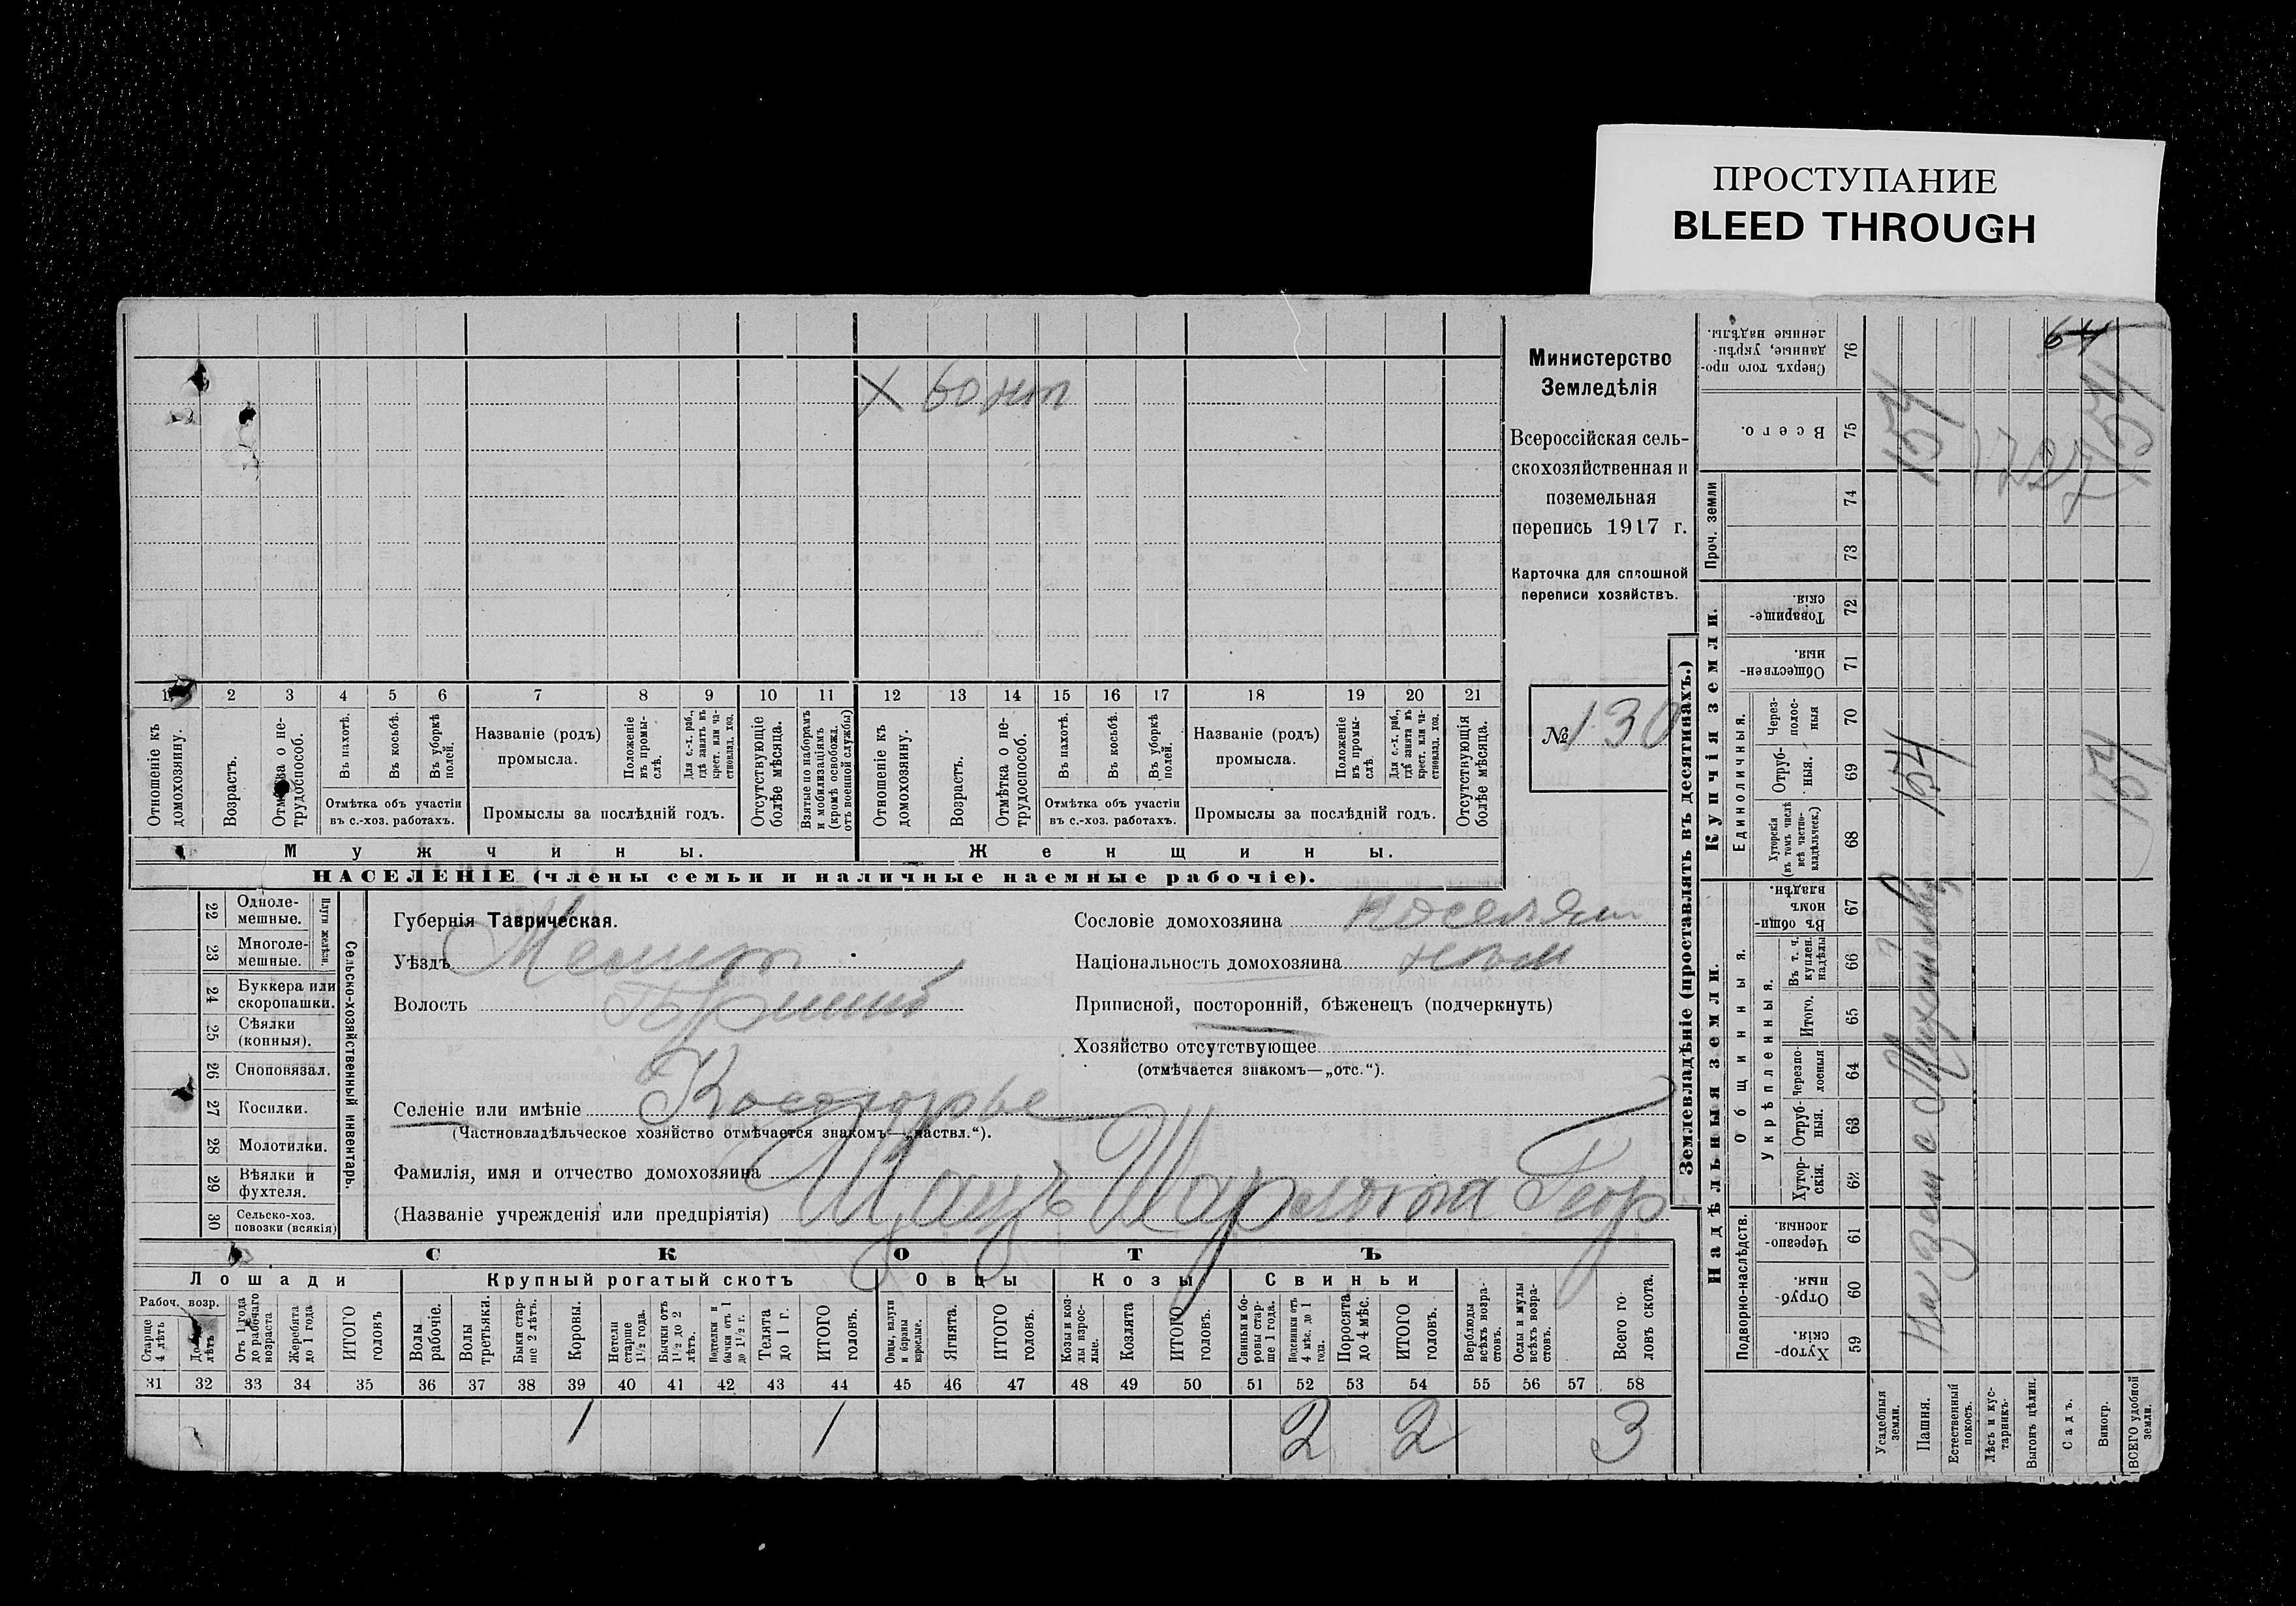 ПРОСТУПАНИЕ
BLEED THROUGH
Х 60 нет
1 2 3 4 5 6 7 8 9 10 11 12 13 14 15 16 17 18 19 20 21
Отношеніе къ домохозяину.
Возрастъ.
Отмѣтка о не-
трудоспособ.
Въ пахотѣ.
Въ косьбѣ.
Въ уборкѣ
полей.
Отмѣтка объ участіи
въ с.-хоз. работахъ.
Названіе (родъ)
промысла.
Положеніе
въ промы-
слѣ.
Для с.-х. раб.,
гдѣ занятъ въ
крест. или ча-
стновлад. хоз.
Промыслы за послѣдній годъ.
Отсутствующіе
болѣе мѣсяца.
Взятые по наборамъ
и мобилизаціямъ
(кромѣ освобожд.
отъ военной службы)
Отношеніе къ
домохозяину.
Возрастъ.
Отмѣтка о не-
трудоспособ.
Въ пахотѣ.
Въ косьбѣ.
Въ уборкѣ
полей.
Отмѣтка объ участіи
въ с.-хоз. работахъ.
Названіе (родъ)
промысла.
Положеніе
въ промы-
слѣ.
Для с.-х. раб.,
гдѣ занята въ
крест. или ча-
стновлад. хоз.
Промыслы за послѣдній годъ.
Отсутствующія
болѣе мѣсяца.
Мужчины.
Женщины.
НАСЕЛЕНІЕ (члены семьи и наличные наемные рабочіе).
Министерство
Земледѣлія
Всероссійская сель-
скохозяйственная и
поземельная
перепись 1917 г.
Карточка для сплошной
переписи хозяйствъ.
№ 130
22 Одноле-
мешные.
23 Многоле-
мешные.
Плуги желѣзн.
24 Буккера или
скоропашки.
25 Сѣялки
(конныя).
26 Сноповязал.
27 Косилки.
28 Молотилки.
29 Вѣялки и
фухтеля.
30 Сельско-хоз.
повозки (всякія)
Сельско-хозяйственный инвентарь.
Губернія Таврическая.
Уѣздъ Мелит
Волость
Селеніе или имѣніе Косогорье
(Частновладѣльческое хозяйство отмѣчается знакомъ—„частвл.“).
Фамилія, имя и отчество домохозяина
(Названіе учрежденія или предпріятія)
Шарлотта Геор
Сословіе домохозяина поселян
Національность домохозяина нѣм
Приписной, посторонній, бѣженецъ (подчеркнуть)
Хозяйство отсутствующее
(отмѣчается знакомъ—„отс.“).
СКОТЪ
Лошади
Рабоч. возр.
Старше
4 лѣтъ
До 4
лѣтъ
Отъ 1 года
до рабочаго
возраста
Жеребята
до 1 года
ИТОГО
головъ
Крупный рогатый скотъ
Волы
рабочіе.
Волы
третьяки.
Быки стар-
ше 2 лѣтъ.
Коровы.
Нетели
старше
1½ года.
Бычки отъ
1½ до 2
лѣтъ.
Подтелки и
бычки отъ 1
до 1½ г.
Телята
до 1 г.
ИТОГО
головъ.
Овцы
Овцы, валухи
и бараны
взрослые.
Ягнята.
ИТОГО
головъ.
Козы
Козы и коз-
лы взрос-
лые.
Козлята
ИТОГО
головъ.
Свиньи
Свиньи и бо-
ровы стар-
ше 1 года.
Подсвинки отъ
4 мѣс. до 1
года.
Поросята
до 4 мѣс.
ИТОГО
головъ.
Верблюды
всѣхъ возра-
стовъ.
Ослы и мулы
всѣхъ возра-
стовъ.
Всего го-
ловъ скота.
31 32 33 34 35 36 37 38 39 40 41 42 43 44 45 46 47 48 49 50 51 52 53 54 55 56 57 58
1 1 2 2 3
Землевладѣніе (проставлять въ десятинахъ.)
Надѣльныя земли.
Купчія земли.
Проч. земли
Подворно-наслѣдств.
Общинныя.
Укрѣпленныя.
Единоличныя.
Сверхъ того про-
данные, укрѣп-
ленные надѣлы.
76
Всего.
75
74
73
Товарище-
скія.
72
Обществен-
ныя.
71
Через-
полос-
ныя
70
Отруб-
ныя.
69
Хуторскія
(въ томъ числѣ
всѣ частно-
владѣльческ.)
68
Въ общин-
номъ
владѣн.
67
Въ т. ч.
куплен.
надѣлы
66
Итого.
65
Черезпо-
лосныя
64
Отруб-
ныя.
63
Хутор-
скія.
62
Черезпо-
лосныя.
61
Отруб-
ныя.
60
Хутор-
скія.
59
Усадебныя
земли.
Пашня.
Естественный
покосъ.
Лѣсъ и кус-
тарникъ.
Выгонъ цѣлин.
Садъ.
Виногр.
ВСЕГО удобной
земли.
64
154
154
154
154